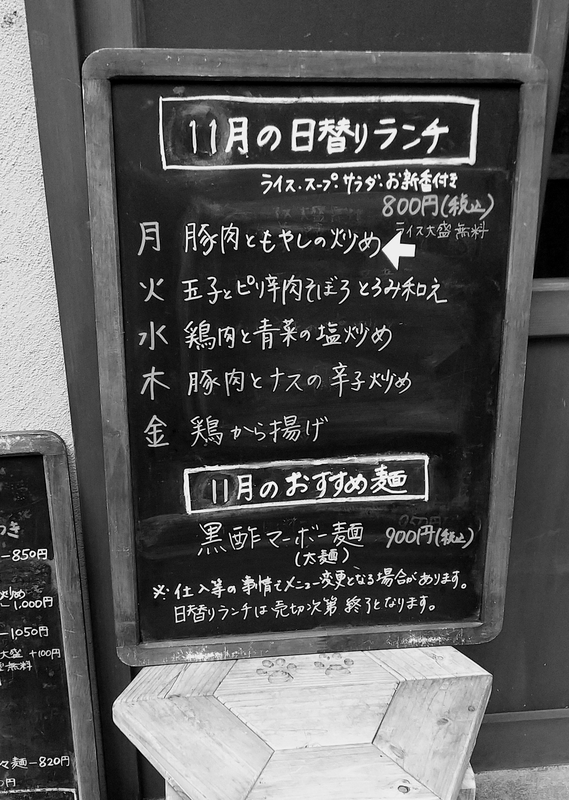 11月の日替りランチ
ライス・スープ・サラダ・お新香付き
800円(税込)
ライス大盛無料
月 豚肉ともやしの炒め
火 玉子とピリ辛肉そぼろとろみ和え
水 鶏肉と青菜の塩炒め
木 豚肉とナスの辛子炒め
金 鶏から揚げ
11月のおすすめ麺
黒酢マーボー麺 900円(税込)
(大麺)
※仕入等の事情でメニュー変更となる場合があります。
日替りランチは売切次第終了となります。
つき
850円
炒め
1,000円
1,050円
大盛 +100円
無料
々麺 820円